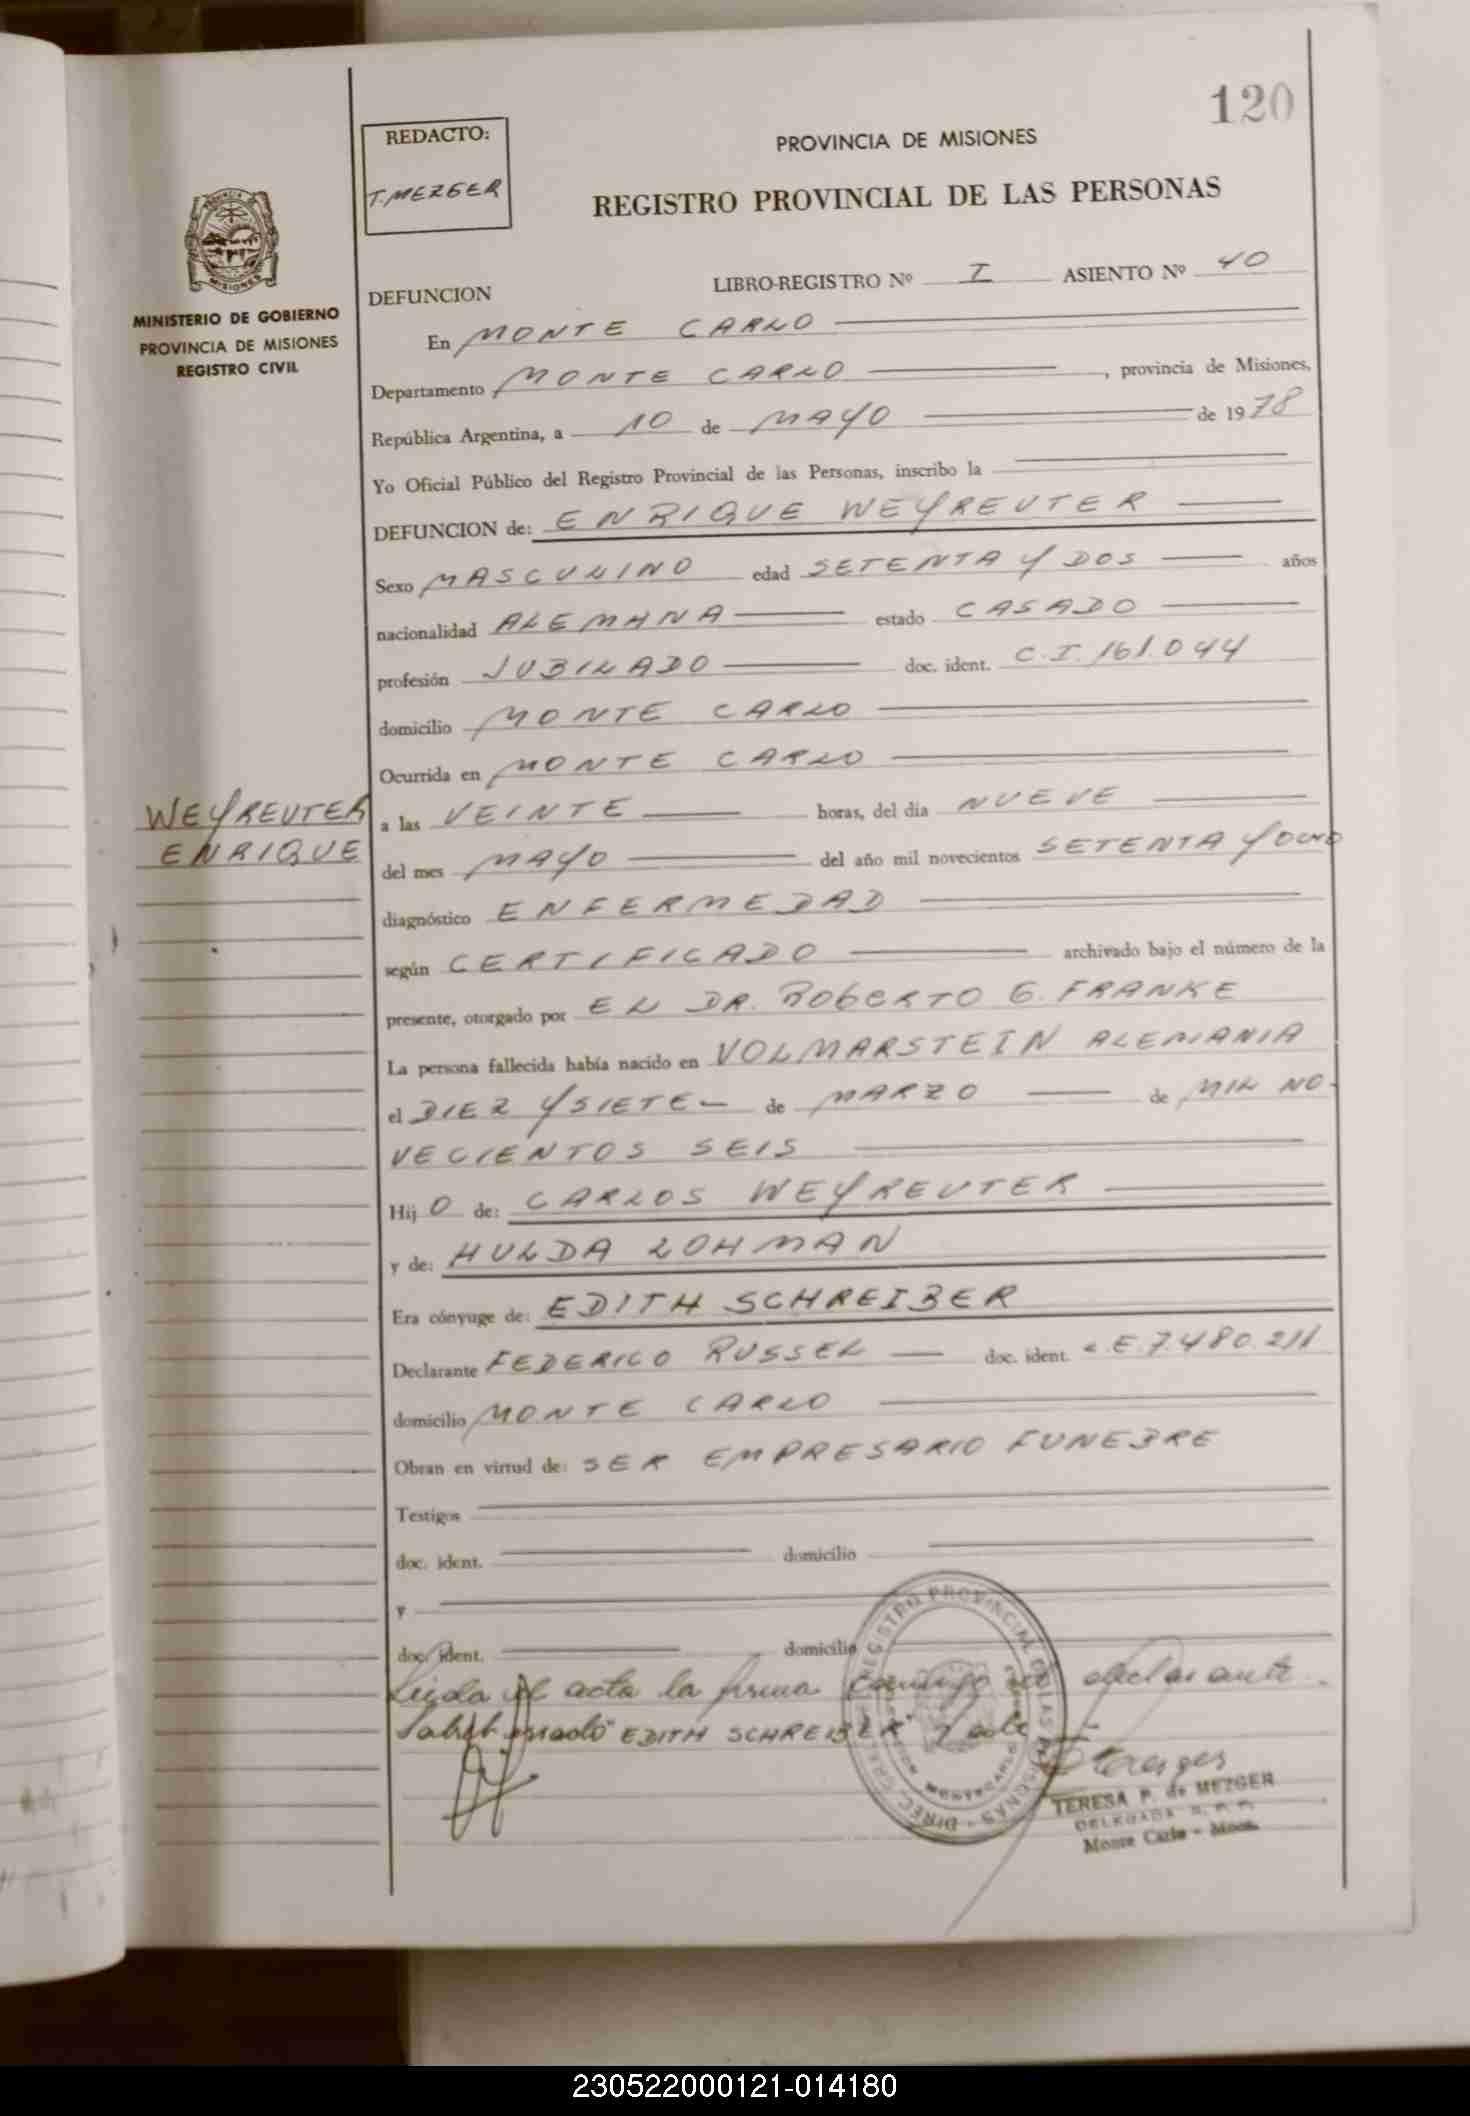 120
REDACTO:
T. MEZGER
PROVINCIA DE MISIONES
REGISTRO PROVINCIAL DE LAS PERSONAS
MISIONES
MINISTERIO DE GOBIERNO
PROVINCIA DE MISIONES
REGISTRO CIVIL
DEFUNCION LIBRO-REGISTRO Nº I ASIENTO Nº 40
En MONTE CARLO
Departamento MONTE CARLO , provincia de Misiones,
República Argentina, a 10 de MAYO de 1978
Yo Oficial Público del Registro Provincial de las Personas, inscribo la
DEFUNCION de: ENRIQUE WEYREUTER
Sexo MASCULINO edad SETENTA Y DOS años
nacionalidad ALEMANA estado CASADO
profesión JUBILADO doc. ident. C.I. 161.044
domicilio MONTE CARLO
Ocurrida en MONTE CARLO
WEYREUTER
ENRIQUE
a las VEINTE horas, del día NUEVE
del mes MAYO del año mil novecientos SETENTA Y OCHO
diagnóstico ENFERMEDAD
según CERTIFICADO archivado bajo el número de la
presente, otorgado por EL DR. ROBERTO G. FRANKE
La persona fallecida había nacido en VOLMARSTEIN ALEMANIA
el DIEZ Y SIETE de MARZO de MIL NO-
VECIENTOS SEIS
Hij O de: CARLOS WEYREUTER
y de: HULDA LOHMAN
Era cónyuge de: EDITH SCHREIBER
Declarante FEDERICO RUSSEL doc. ident. C.E. 7.480.211
domicilio MONTE CARLO
Obran en virtud de: SER EMPRESARIO FUNEBRE
Testigos
doc. ident. domicilio
y
doc. ident. domicilio
Leida el acta la firma conmigo el declarante.
"EDITH SCHREIBER" Vale
DIREC. GRAL. REGISTRO PROVINCIAL DE LAS PERSONAS
MONTECARLO
TERESA P. de MEZGER
DELEGADA R. P. P.
Monte Carlo - Mnes.
230522000121-014180